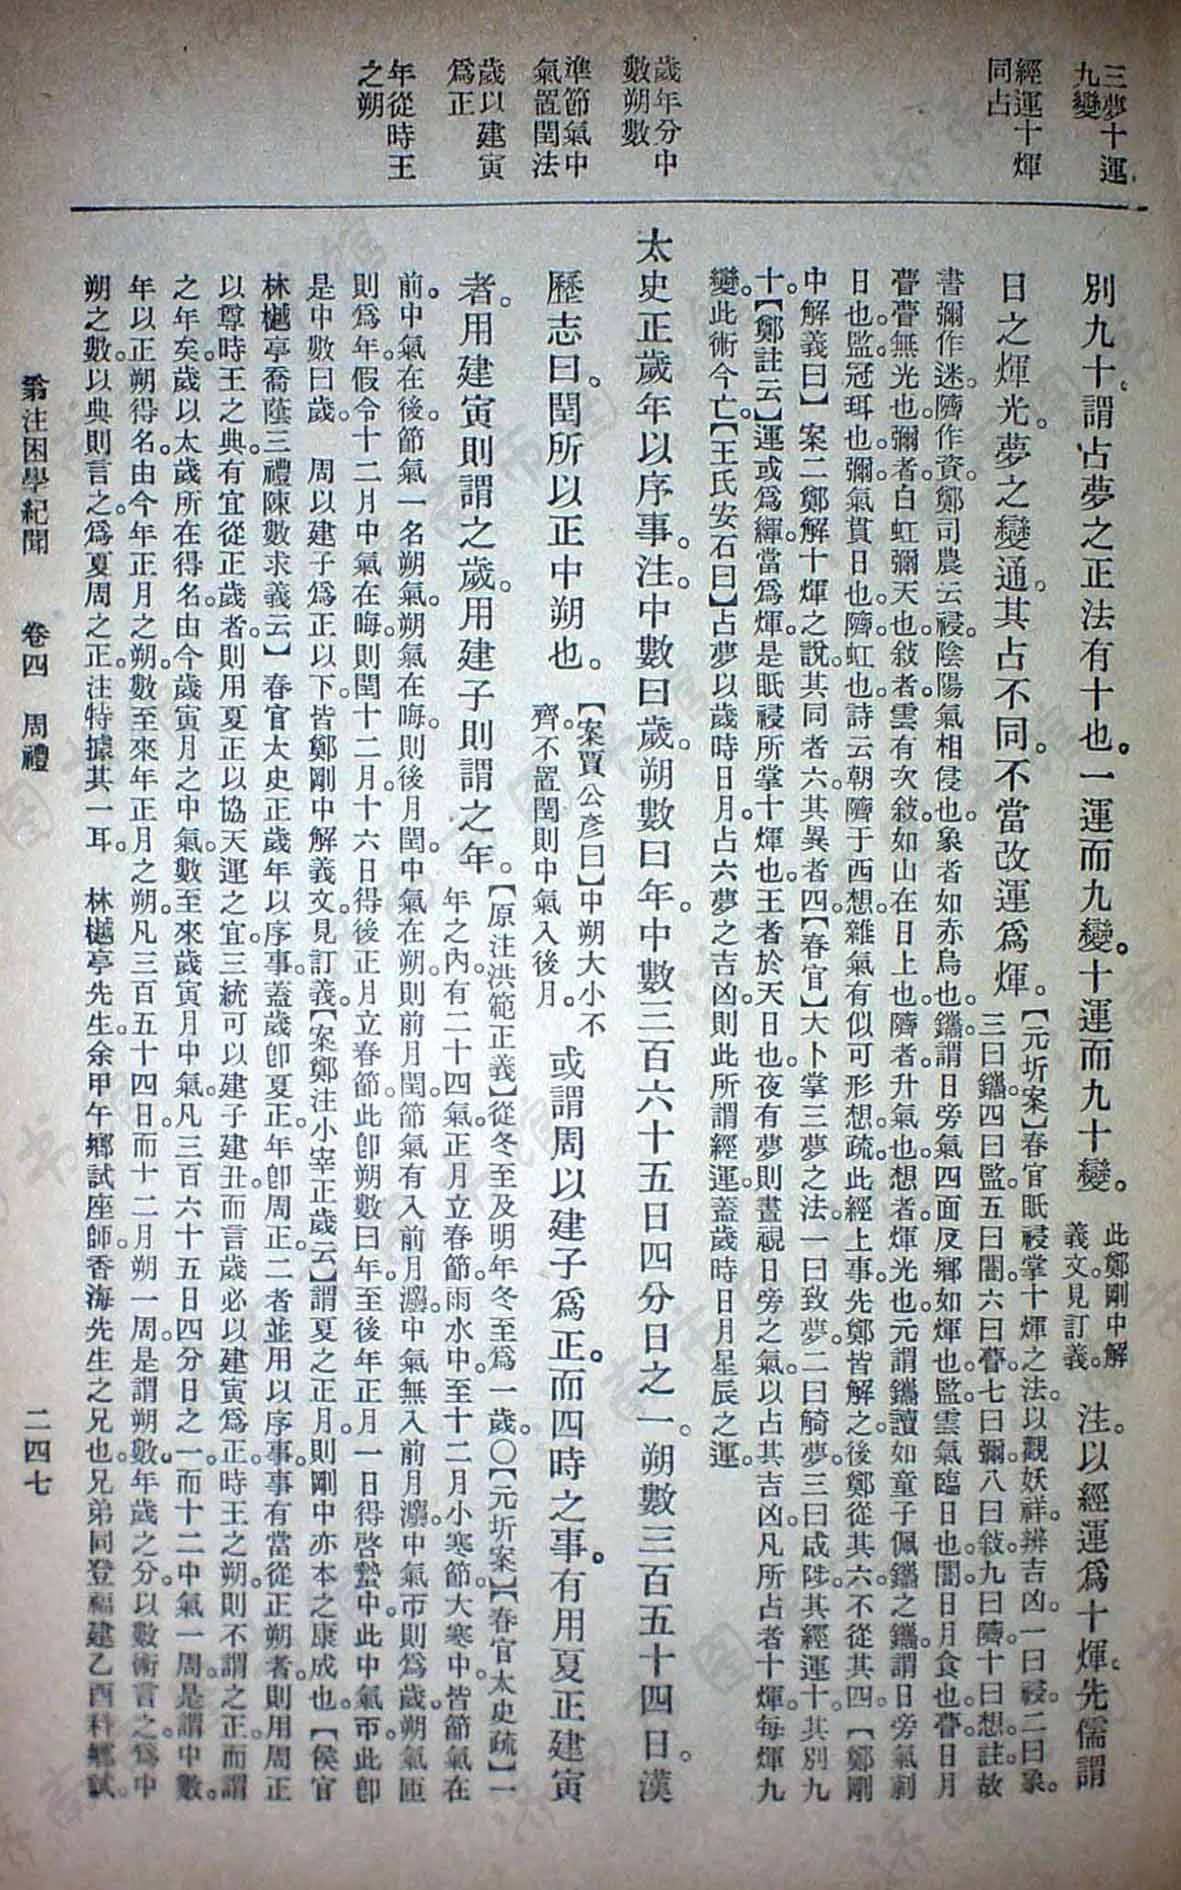 三夢十運
九變
經運十煇
同占
歲年分中
數朔數
準節氣中
氣置閏法
歲以建寅
爲正
年從時王
之朔
別九十。謂占夢之正法有十也。一運而九變。十運而九十變。
此鄭剛中解
義文。見訂義。
注。以經運爲十煇。先儒謂
日之煇光。夢之變通。其占不同。不當改運爲煇。
【元圻案】春官眂祲掌十煇之法。以觀妖祥。辨吉凶。一曰祲。二曰象。
三曰鑴。四曰監。五曰闇。六曰瞢。七曰彌。八曰敍。九曰隮。十曰想。註。故
書彌作迷。隮作資。鄭司農云。祲。陰陽氣相侵也。象者如赤烏也。鑴。謂日旁氣四面反鄉如煇也。監。雲氣臨日也。闇。日月食也。瞢。日月
瞢瞢無光也。彌者。白虹彌天也。敍者。雲有次敍。如山在日上也。隮者。升氣也。想者。煇光也。元謂鑴讀如童子佩鑴之鑴。謂日旁氣刺
日也。監。冠珥也。彌。氣貫日也。隮。虹也。詩云。朝隮于西。想。雜氣有似可形想。疏。此經上事。先鄭皆解之。後鄭從其六。不從其四。【鄭剛
中解義曰】案二鄭解十煇之說。其同者六。其異者四。【春官】大卜掌三夢之法。一曰致夢。二曰觭夢。三曰咸陟。其經運十。其別九
十。【鄭註云】運或爲緷。當爲煇。是眂祲所掌十煇也。王者於天日也。夜有夢。則晝視日旁之氣。以占其吉凶。凡所占者十煇。每煇九
變。此術今亡。【王氏安石曰】占夢以歲時日月。占六夢之吉凶。則此所謂經運。蓋歲時日月星辰之運。
太史正歲年以序事。注。中數曰歲。朔數曰年。中數三百六十五日四分日之一。朔數三百五十四日。漢
歷志曰。閏所以正中朔也。
【案賈公彥曰】中朔大小不
齊。不置閏則中氣入後月。
或謂周以建子爲正。而四時之事。有用夏正建寅
者。用建寅則謂之歲。用建子則謂之年。
【原注洪範正義】從冬至及明年冬至爲一歲。○【元圻案】【春官太史疏】一
年之內。有二十四氣。正月立春節。雨水中。至十二月小寒節。大寒中。皆節氣在
前。中氣在後。節氣一名朔氣。朔氣在晦。則後月閏。中氣在朔。則前月閏。節氣有入前月灋。中氣無入前月灋。中氣帀則爲歲。朔氣匝
則爲年。假令十二月中氣在晦。則閏十二月。十六日得後正月立春節。此卽朔數曰年。至後年正月一日得啓蟄中。此中氣帀。此卽
是中數曰歲。　周以建子爲正以下。皆鄭剛中解義文。見訂義。【案鄭注小宰正歲云】謂夏之正月。則剛中亦本之康成也。【侯官
林樾亭喬蔭三禮陳數求義云】春官太史正歲年以序事。蓋歲卽夏正。年卽周正。二者並用以序事。事有當從正朔者。則用周正
以尊時王之典。有宜從正歲者。則用夏正以協天運之宜。三統可以建子建丑。而言歲必以建寅爲正。時王之朔。則不謂之正。而謂
之年矣。歲以太歲所在得名。由今歲寅月之中氣。數至來歲寅月中氣。凡三百六十五日四分日之一。而十二中氣一周。是謂中數。
年以正朔得名。由今年正月之朔。數至來年正月之朔。凡三百五十四日。而十二月朔一周。是謂朔數。年歲之分。以數術言之。爲中
朔之數。以典則言之。爲夏周之正。注特據其一耳。　林樾亭先生。余甲午鄉試座師。香海先生之兄也。兄弟同登福建乙酉科鄉試。
翁注困學紀聞　卷四　周禮　二四七